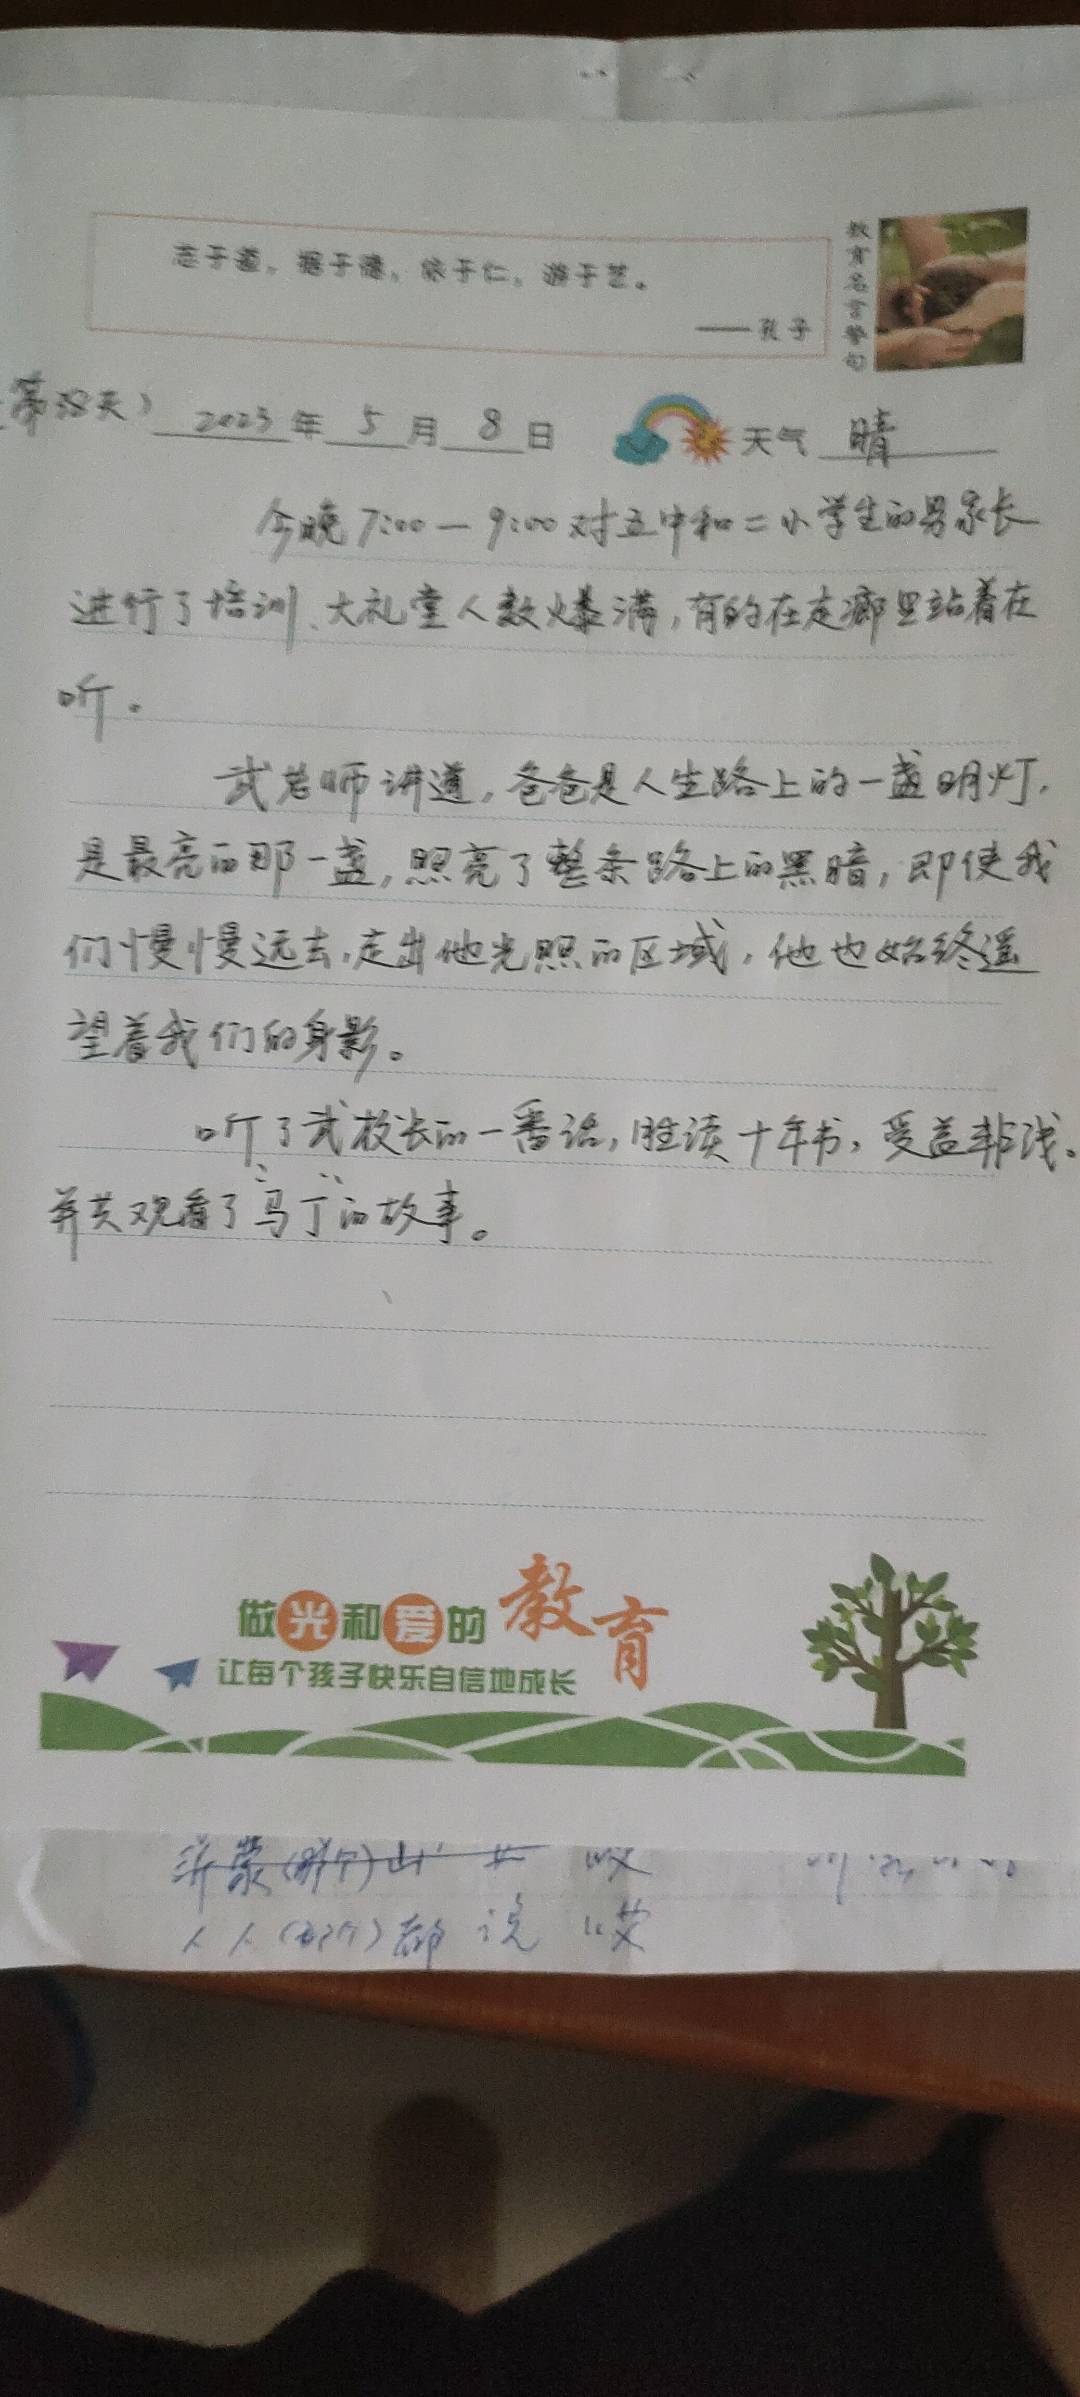 志于道，据于德，依于仁，游于艺。
——孔子
教育名言警句
第38天） 2023年 5月 8日 天气 晴
今晚7:00—9:00对五中和二小学生的男家长
进行了培训、大礼堂人数爆满，有的在走廊里站着在
听。
武老师讲道，爸爸是人生路上的一盏明灯，
是最亮的那一盏，照亮了整条路上的黑暗，即使我
们慢慢远去，走出他光照的区域，他也始终遥
望着我们的身影。
听了武校长的一番话，胜读十年书，受益非浅。
并共观看了马丁的故事。
做光和爱的教育
让每个孩子快乐自信地成长
人人（那个）都说